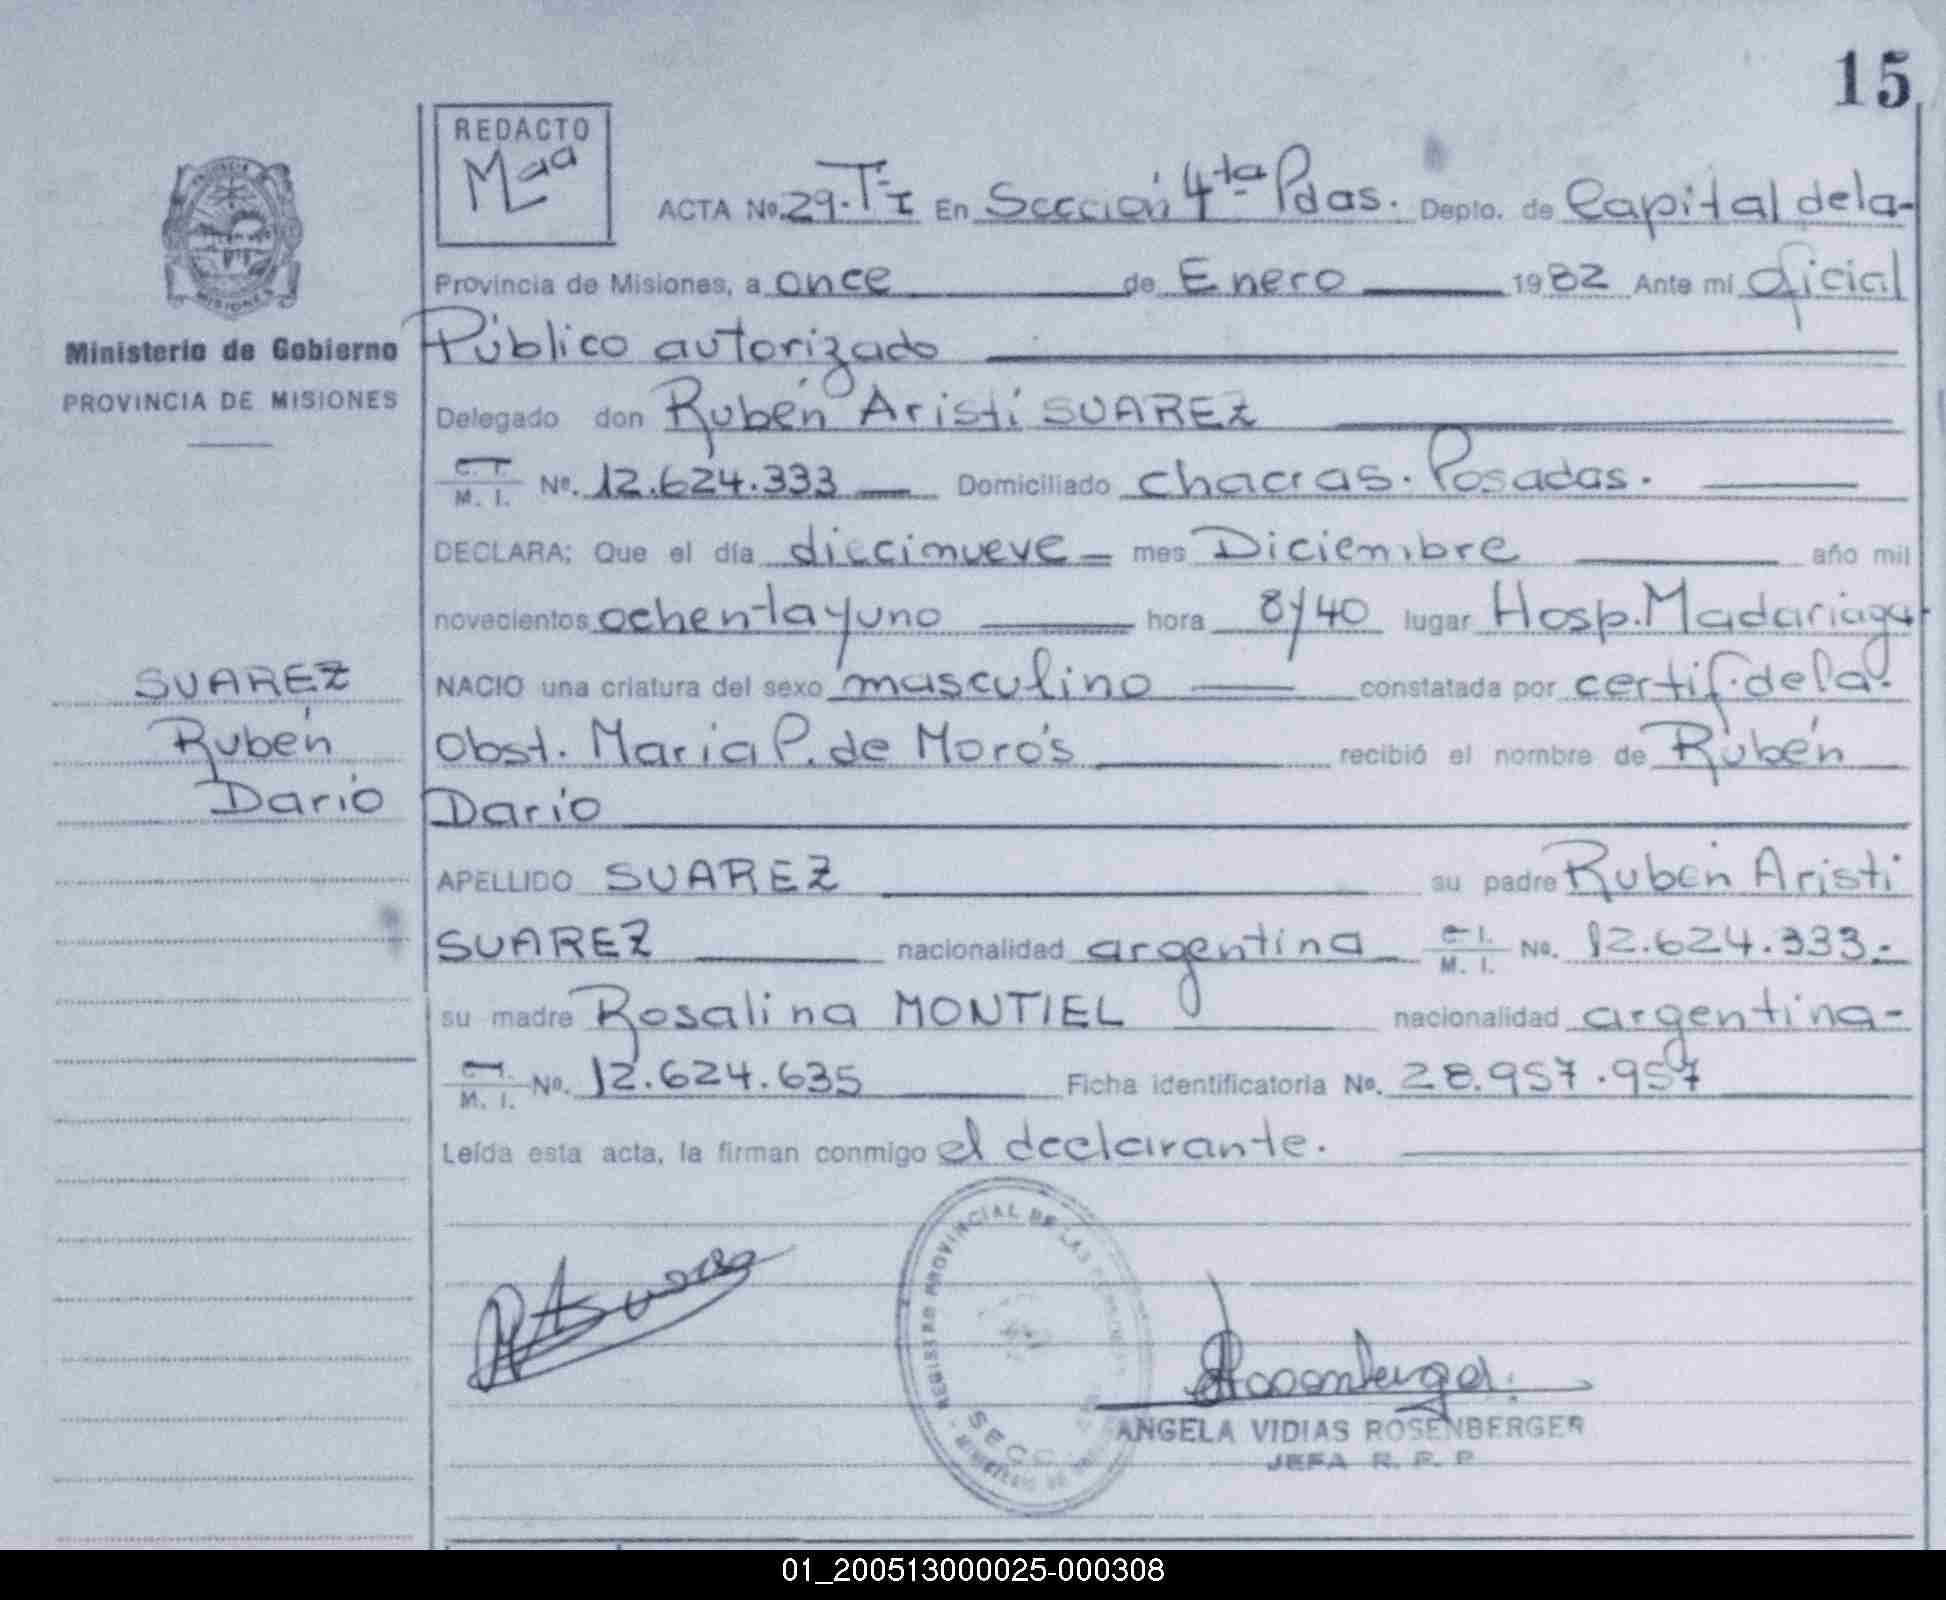 15
REDACTO
Maa
ACTA No. 29. T= I En Sección 4ta Pdas. Depto. de Capital de la-
Provincia de Misiones, a once de Enero 1982 Ante mi Oficial
Público autorizado
Delegado don Rubén Aristi SUAREZ
M. I. No. 12.624.333 Domiciliado chacras. Posadas.
DECLARA; Que el día diecinueve mes Diciembre año mil
novecientos ochenta y uno hora 8y40 lugar Hosp. Madariaga
NACIO una criatura del sexo masculino constatada por certif. de la
Obst. Maria P. de Morós recibió el nombre de Rubén
Darío
APELLIDO SUAREZ su padre Rubén Aristi
SUAREZ nacionalidad argentina M. I. No. 12.624.333.-
su madre Rosalina MONTIEL nacionalidad argentina-
M. I. No. 12.624.635 Ficha identificatoria No. 28.957.957
Leída esta acta, la firman conmigo el declarante.
PROVINCIA
MISIONES
Ministerio de Gobierno
PROVINCIA DE MISIONES
SUAREZ
Rubén
Darío
REGISTRO PROVINCIAL DE LAS
SECC.
ANGELA VIDIAS ROSENBERGER
JEFA R. P. P
01_200513000025-000308